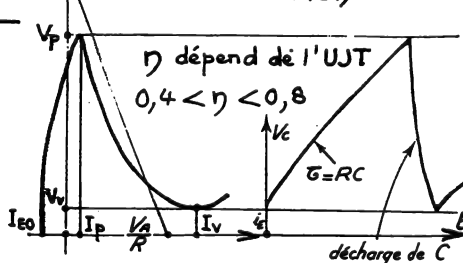 Vp
η dépend de l'UJT
0,4 < η < 0,8
Vc
τ=RC
Vv
IEO
Ip
VA/R
Iv
iE
t
décharge de C